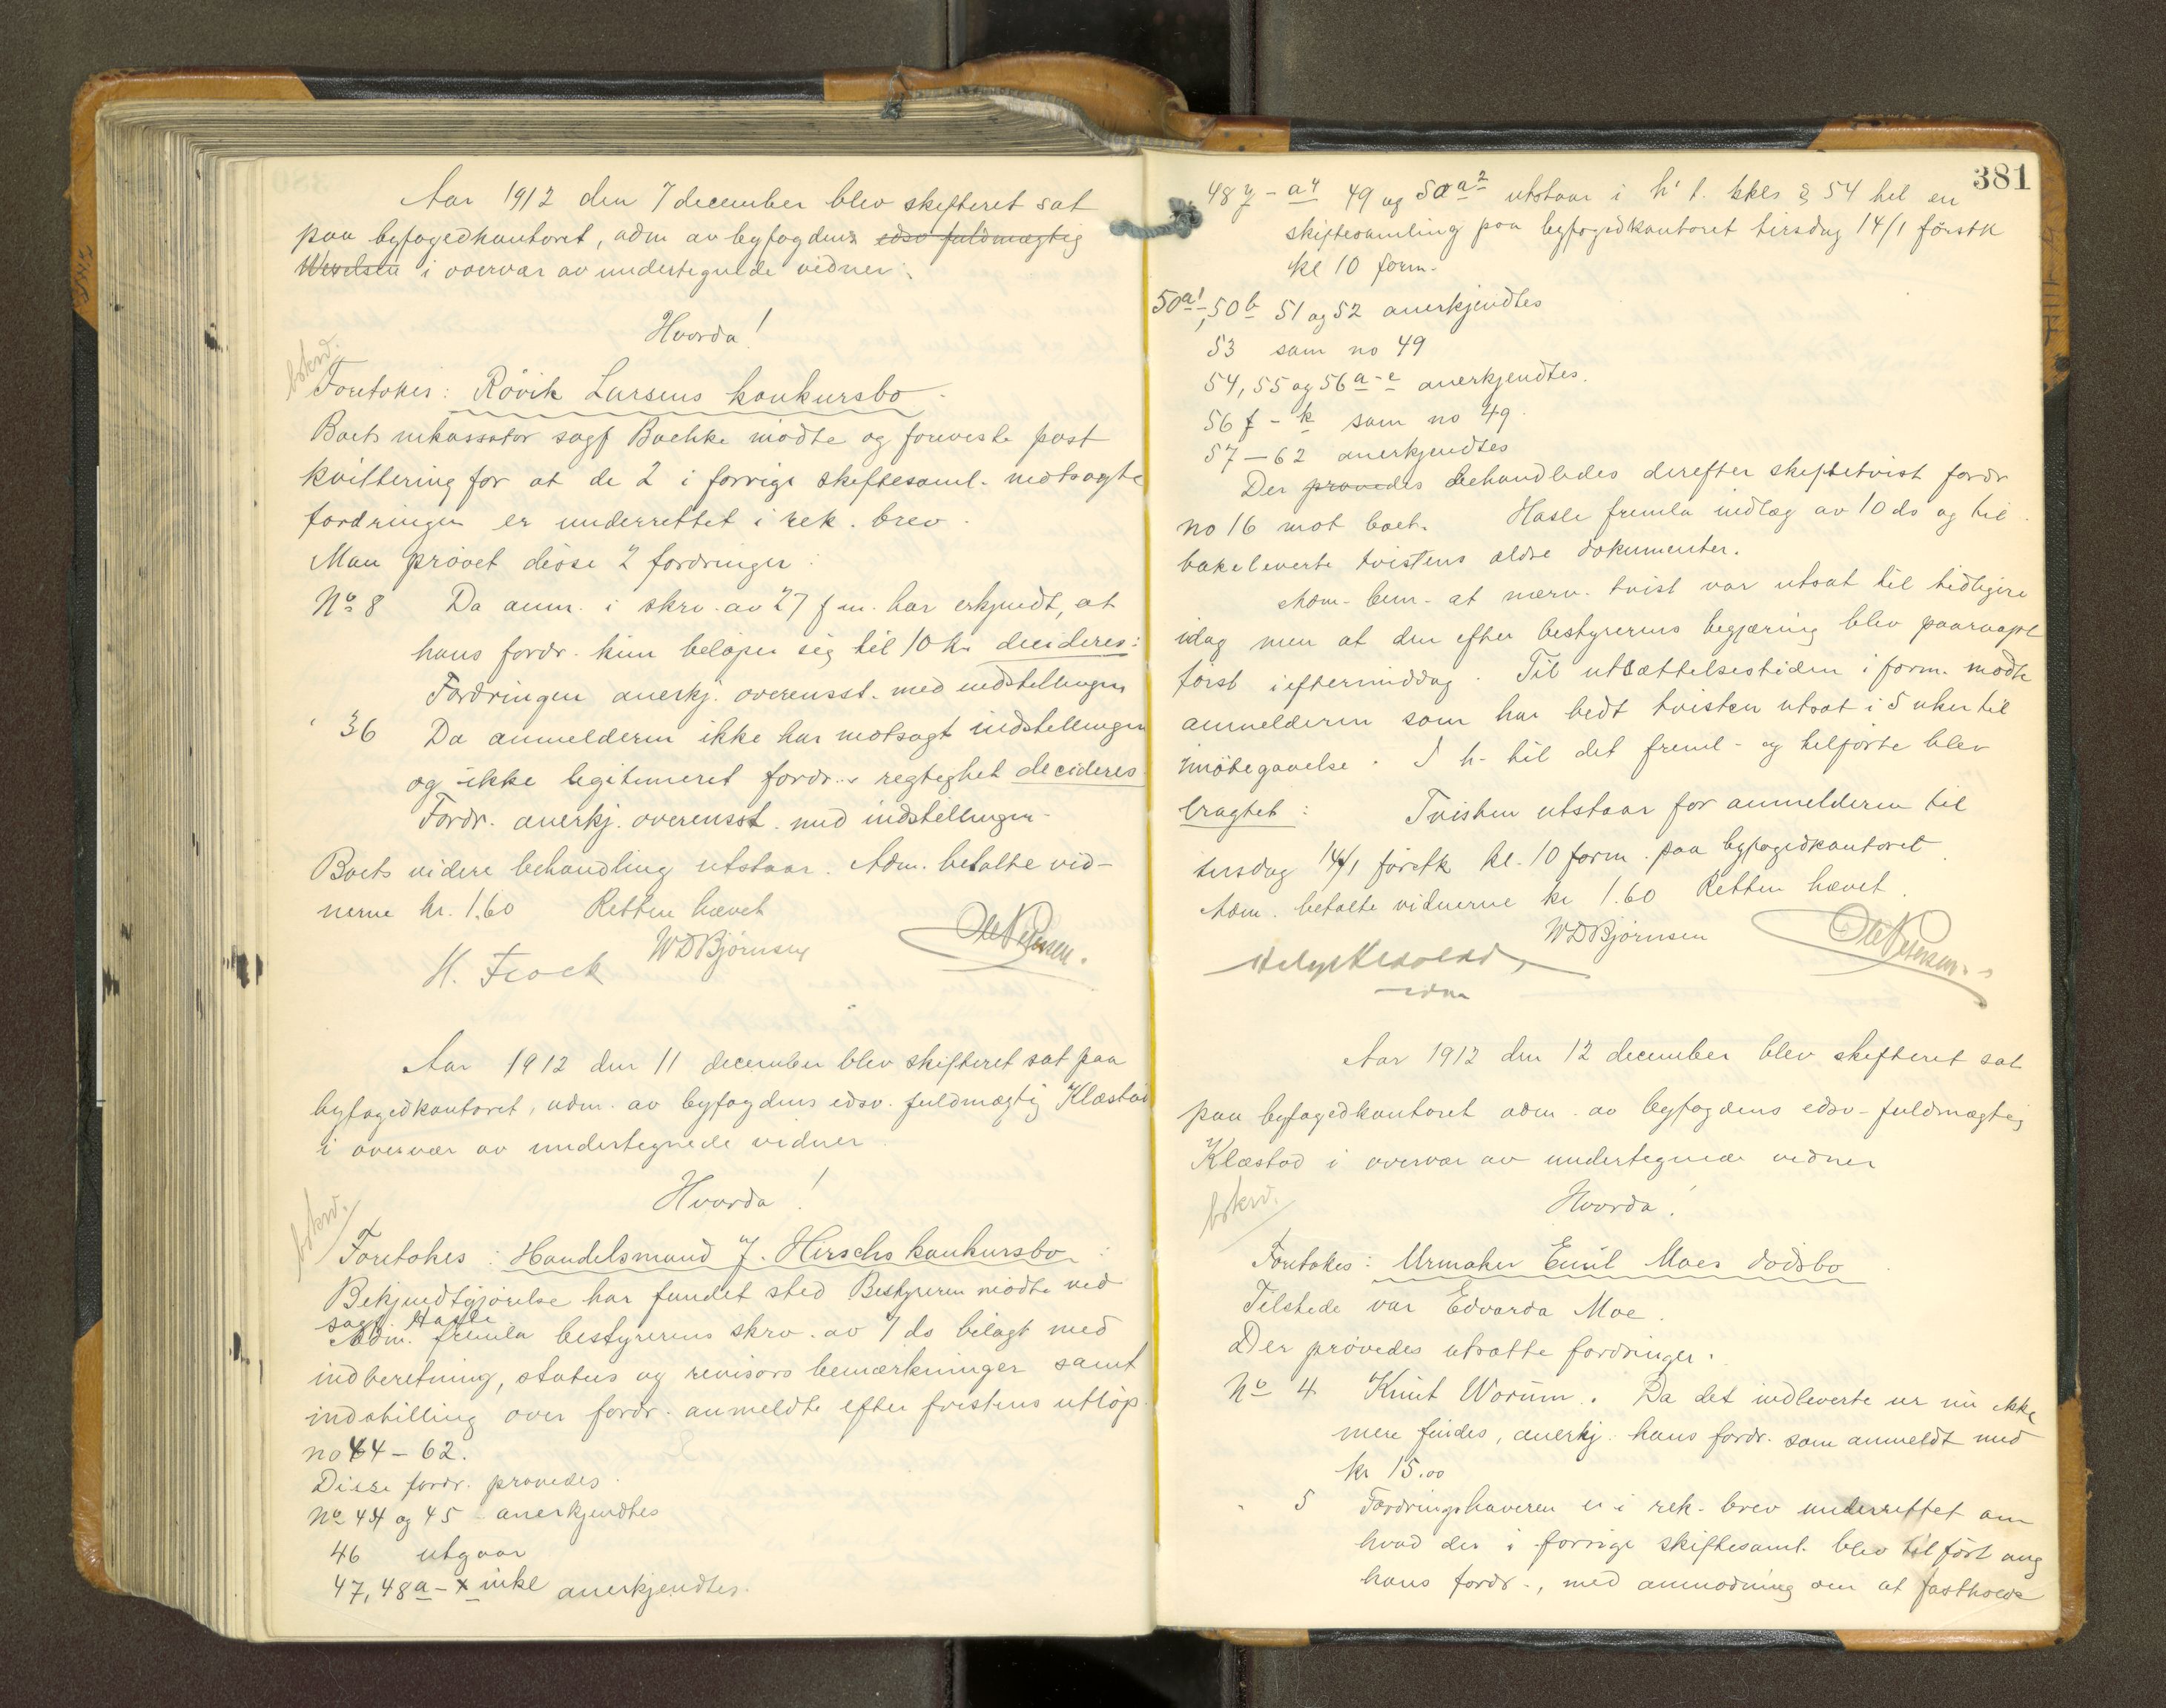 Aar 1912 den 7 december blev skifteret sat
paa byfogedkontoret, adm av byfogden edsv fuldmægtig
Wexelsen i overvær av undertegnede vidner:
Hvorda!
bskrd.
Foretokes: Rövik Larsens konkursbo.
Boets inkassator sagf Baehke mödte og foreviste post
kvittering for at de 2 i forrige skiftesaml. motsagte
fordringer er underrettet i rek. brev.
Man prövet disse 2 fordringer:
No 8 Da anm. i skrv. av 27 f m. har erkjendt, at
hans fordr. kun belöper sig til 10 kr decideres:
Fordringen anerkj. overensst. med indstillingen
" 36 Da anmelderen ikke har motsagt indstillingen
og ikke legitimeret fordr.s rigtighet decideres
Fordr. anerkj. overensst. med indstillingen.
Boets videre behandling utstaar. Adm. betalte vid-
nerne kr. 1.60 Retten hævet
WDBjörnsen Ole Petersen.
H. Frock
Aar 1912 den 11 december blev skifteret sat paa
byfogedkontoret, adm. av byfogdens edsv. fuldmægtig Klæstad
i overvær av undertegnede vidner.
Hvorda!
bskrd.
Foretokes: Handelsmand J. Hirschs konkursbo:
Bekjendtgjörelse har fundet sted Bestyreren mödte ved
sagf. Hasle
Adm. fremla bestyrerens skrv. av 7 ds bilagt med
indberetning, status og revisors bemærkninger samt
indstilling over fordr. anmeldte efter fristens utlöp.
no 44 – 62.
Disse fordr. prövedes.
No 44 og 45 anerkjendtes
46 utgaar
47, 48 a – x inkl anerkjendtes.
381
48 y – a4 49 og 50 a2 utstaar i h' t. kkls § 54 til en
skiftesamling paa byfogedkontoret tirsdag 14/1 förstk
kl 10 form.
50 a1, 50 b 51 og 52 anerkjendtes
53 som no 49
54, 55 og 56 a – e anerkjendtes.
56 f – k som no 49.
57 – 62 anerkjendtes
Der prövedes behandledes derefter skiftetvist fordr
no 16 mot boet. Hasle fremla indlæg av 10 ds og til
bakeleverte tvistens ældre dokumenter.
Adm. bem. at nærv. tvist var utsat til tidligere
idag men at den efter bestyrerens begjæring blev paaraapt
först i eftermiddag. Til utsættelsestiden i form. mödte
anmelderen som har bedt tvisten utsat i 5 uker til
imötegaaelse. I h. til det freml. og tilförte blev
bragtet: Tvisten utstaar for anmelderen til
tirsdag 14/1 förstk kl. 10 form. paa byfogedkontoret.
Adm. betalte vidnerne kr 1.60 Retten hævet.
WDBjörnsen Ole Petersen.
Aar 1912 den 12 december blev skifteret sat
paa byfogedkontoret adm. av byfogdens edsv. fuldmægtig
Klæstad i overvær av undertegnede vidner
Hvorda!
bskrd.
Foretokes: Urmaker Emil Moes dödsbo.
Tilstede var Edvarda Moe.
Der prövedes utsatte fordringer.
No 4 Knut Worum. Da det indleverte ur nu ikke
mere findes, anerkj. hans fordr. som anmeldt med
kr 15.00
" 5 Fordringshaveren er i rek. brev underrettet om
hvad der i forrige skiftesaml. blev tilfört ang
hans fordr., med anmodning om at fastholde